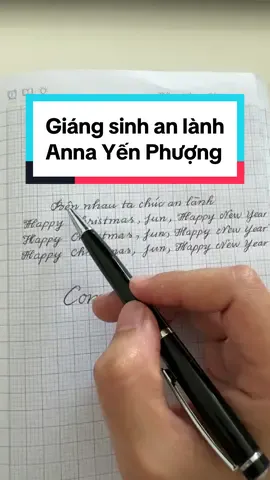 Giáng sinh an lành
Anna Yến Phượng
Bên nhau ta chúc an lành
Happy Christmas, fun, Happy New Year
Happy Christmas, fun, Happy New Year
Happy Christmas, fun, Happy New Year
Con